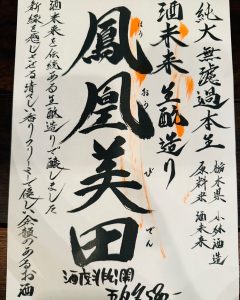 純大無濾過本生
栃木県 小林酒造
原料米 酒未来
酒未来生酛造り
鳳凰美田
ほう おう び でん
酒未来を伝統ある生酛造りで醸しました
新緑を感じさせる清々しい香りクリーミーで優しい余韻のあるお酒